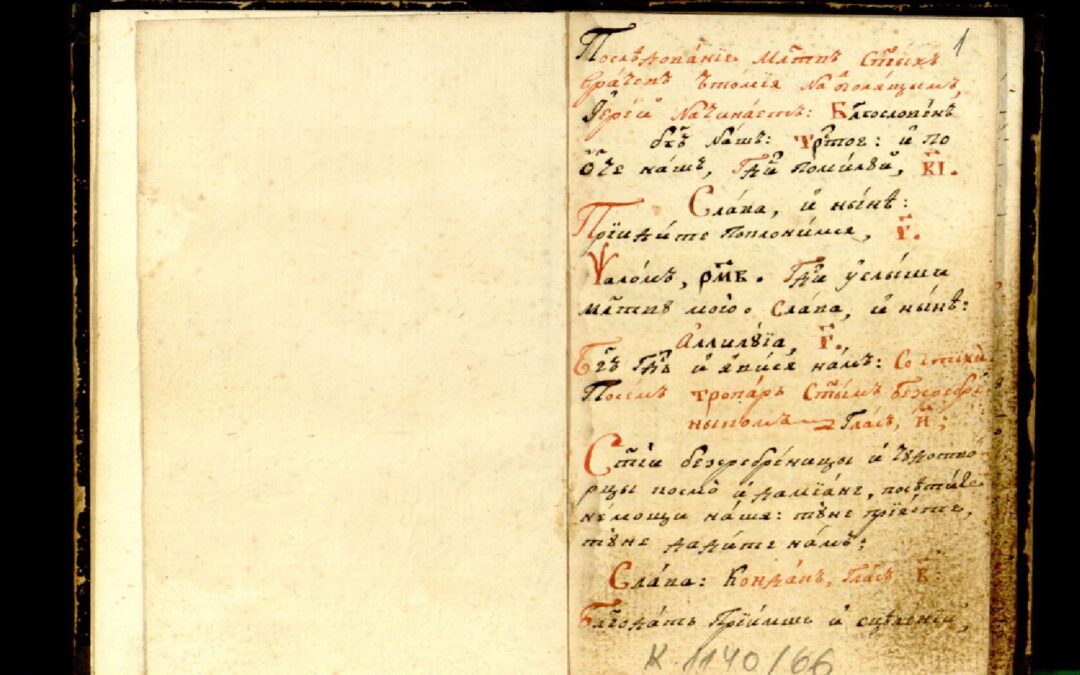 1
Послѣдова́нїе мл҃твъ ст҃ы́хъ
Їере́й начина́етъ: Бл҃гослове́нъ
бг҃ъ на́шъ: трⷭ҇тое: и҆ по
ѻ҆́ч҃е на́шъ, гдⷭ҇и поми́лꙋй, в҃і.
Сла́ва, и҆ ны́нѣ:
Прїиди́те поклони́мсѧ, г҃.
Ѱало́мъ, рм҃в. Гдⷭ҇и ᲂу҆слы́ши
мл҃твꙋ мою̀. Сла́ва, и҆ ны́нѣ:
Аллилꙋ́їа, г҃.
Бг҃ъ гдⷭ҇ь и҆ ꙗ҆ви́сѧ на́мъ: Со стихи̑
Посе́мъ тропа́рь ст҃ы́мъ безсребре́
никомъ Гла́съ, и҃;
Ст҃і́и безсребре́ницы и҆ чꙋдотво́
рцы космо̀ и҆ дамїа́не, посѣти́те
не́мощи на́шѧ: тꙋ́не прїѧ́сте,
тꙋ́не дади́те на́мъ;
Сла́ва: Конда́къ, Гла́съ, в҃:
Бл҃года́ть прїи́мше и҆ сцѣле́нїй,
К 1140/66